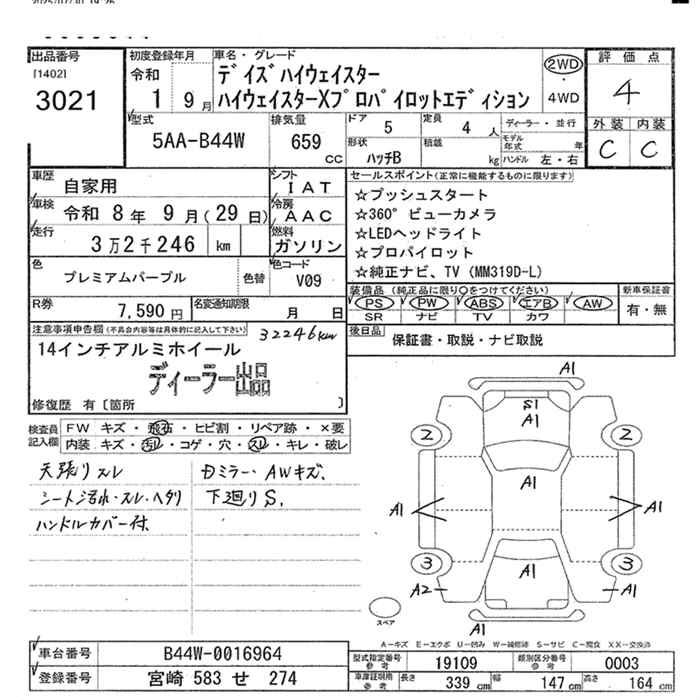 出品番号
[1402]
3021
初度登録年月
令和
1 9月
車名・グレード
デイズハイウェイスター
ハイウェイスターXプロパイロットエディション
2WD
・
4WD
評価点
4
外装 内装
C C
型式
5AA-B44W
排気量
659
cc
ドア
5
定員
4 人
形状
ハッチB
積載
kg
ディーラー・並行
モデル年式 年
ハンドル 左・右
車歴
自家用
シフト
IAT
車検
令和 8年 9月(29日)
冷房
AAC
走行
3万2千246 km
燃料
ガソリン
色
プレミアムパープル
色替
色コード
V09
R券
7,590円
名変通知期限
月 日
セールスポイント(正常に機能するものに限ります)
☆プッシュスタート
☆360°ビューカメラ
☆LEDヘッドライト
☆プロパイロット
☆純正ナビ、TV (MM319D-L)
装備品 (純正品に限り○をつけてください)
PS PW ABS エアB AW
SR ナビ TV カワ
新車保証書
有・無
後日品
保証書・取説・ナビ取説
注意事項申告欄(不具合内容等は具体的に記入して下さい)
32246km
14インチアルミホイール
ディーラー出品
修復歴 有〔箇所 〕
検査員記入欄
FW キズ・飛石・ヒビ割・リペア跡・×要
内装 キズ・汚レ・コゲ・穴・スレ・キレ・破レ
天張りスレ
シート汚れ・スレ・ヘタリ
ハンドルカバー付.
Dミラー・AWキズ.
下廻りS.
A1
S1
A1
2 2
A1
A1 A1
3 3
A1
A2 A1
A1
スペア
A-キズ E-エクボ U-凹み W-補修跡 S-サビ C-腐食 XX-交換済
車台番号
B44W-0016964
登録番号
宮崎 583 せ 274
型式指定番号
参考
19109
類別区分番号
参考
0003
車庫証明用
参考
長さ 339 cm
幅 147 cm
高さ 164 cm